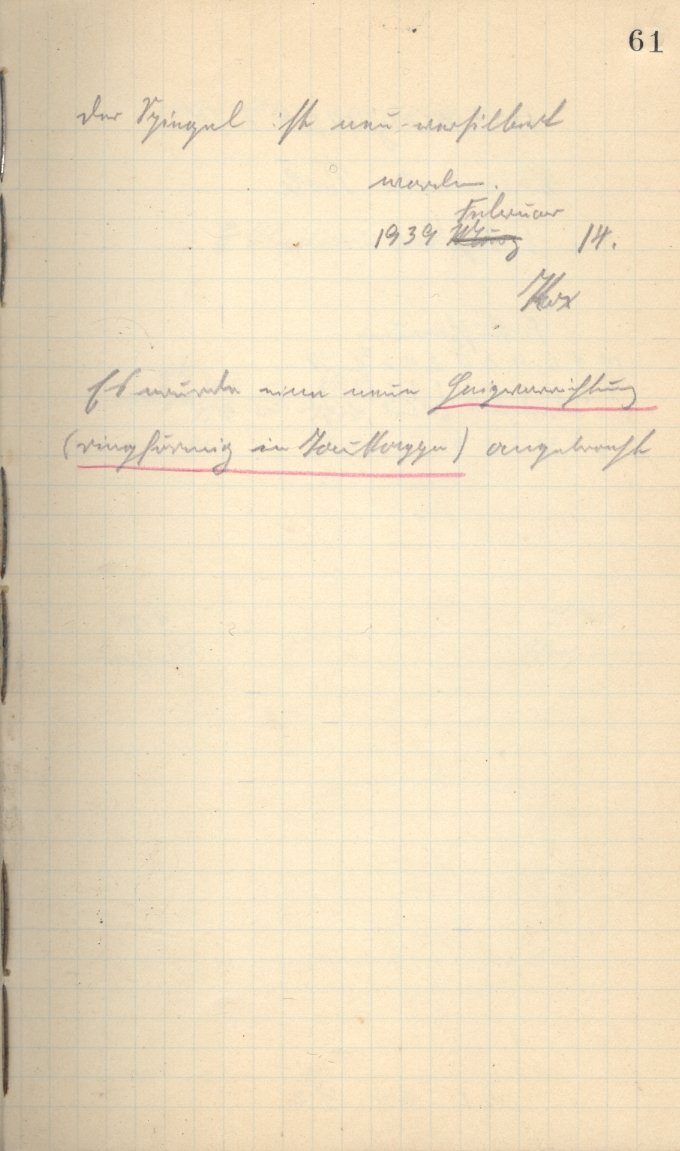 61
Der Spiegel ist neu versilbert
worden.
Februar
1939 März 14.
Es wurde eine neue Heizvorrichtung
(ringförmig in Taukappe) angebracht